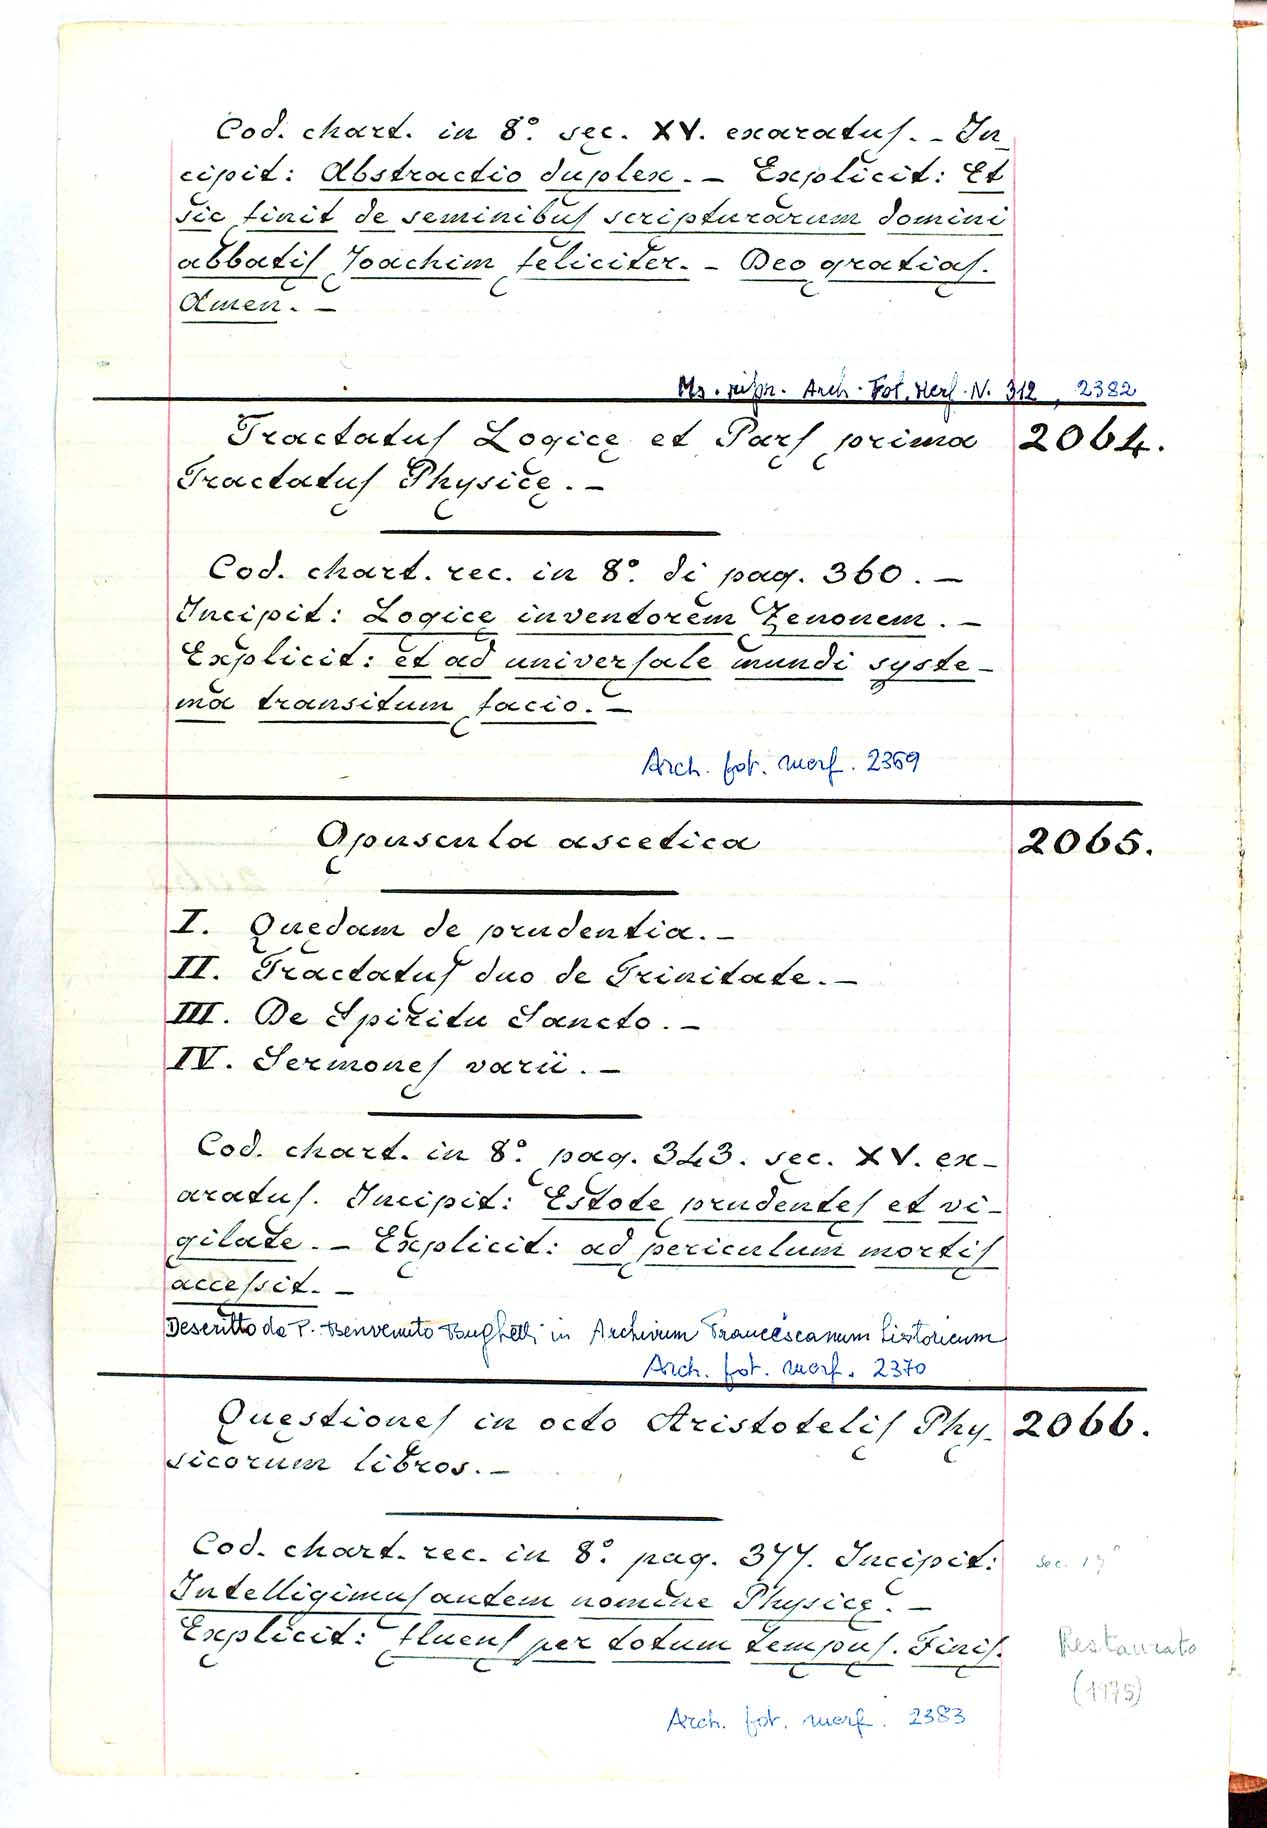 Cod. chart. in 8º. sec. XV. exaratus. - In-
cipit: Abstractio duplex. - Explicit: Et
sic finit de seminibus scripturarum domini
abbatis Joachim feliciter. - Deo gratias.
Amen. -
Ms. ripr. Arch. Fot. Merf. N. 312, 2382
Tractatus Logicę et Pars prima 2064.
Tractatus Physicę. -
Cod. chart. rec. in 8º. di pag. 360. -
Incipit: Logice inventorem Zenonem. -
Explicit: et ad universale mundi syste-
ma transitum facio. -
Arch. fot. merf. 2369
Opuscula ascetica 2065.
I. Quędam de prudentia. -
II. Tractatus duo de Trinitate. -
III. De Spiritu Sancto. -
IV. Sermones varii. -
Cod. chart. in 8º. pag. 343. sec. XV. ex-
aratus. Incipit: Estote prudentes et vi-
gilate. - Explicit: ad periculum mortis
accessit. -
Descritto da P. Benvenuto Bughetti in Archivum Franciscanum historicum
Arch. fot. merf. 2370
Questiones in octo Aristotelis Phy- 2066.
sicorum libros. -
Cod. chart. rec. in 8º. pag. 377. Incipit:
Intelligimus autem nomine Physicę. -
Explicit: fluens per totum tempus. Finis.
Restaurato
(1975)
Arch. fot. merf. 2383